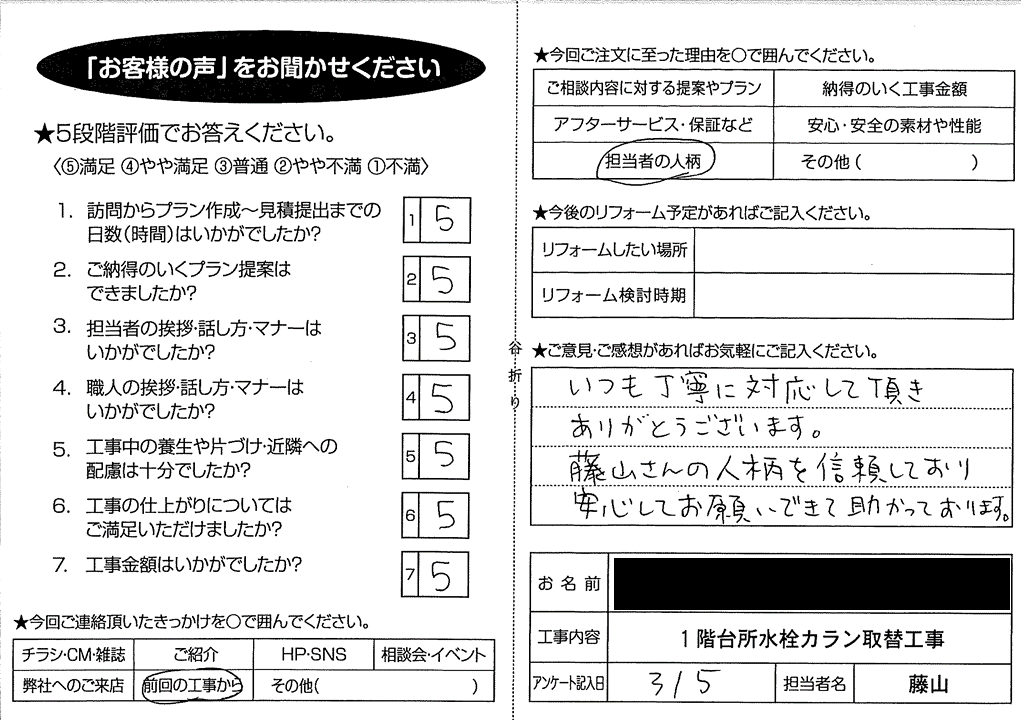 「お客様の声」をお聞かせください
★5段階評価でお答えください。
〈⑤満足 ④やや満足 ③普通 ②やや不満 ①不満〉
1. 訪問からプラン作成～見積提出までの
日数(時間)はいかがでしたか?
1 5
2. ご納得のいくプラン提案は
できましたか?
2 5
3. 担当者の挨拶・話し方・マナーは
いかがでしたか?
3 5
4. 職人の挨拶・話し方・マナーは
いかがでしたか?
4 5
5. 工事中の養生や片づけ・近隣への
配慮は十分でしたか?
5 5
6. 工事の仕上がりについては
ご満足いただけましたか?
6 5
7. 工事金額はいかがでしたか?
7 5
★今回ご連絡頂いたきっかけを○で囲んでください。
チラシ・CM・雑誌 ご紹介 HP・SNS 相談会・イベント
弊社へのご来店 前回の工事から その他( )
谷折り
★今回ご注文に至った理由を○で囲んでください。
ご相談内容に対する提案やプラン 納得のいく工事金額
アフターサービス・保証など 安心・安全の素材や性能
担当者の人柄 その他( )
★今後のリフォーム予定があればご記入ください。
リフォームしたい場所
リフォーム検討時期
★ご意見・ご感想があればお気軽にご記入ください。
いつも丁寧に対応して頂き
ありがとうございます。
藤山さんの人柄を信頼しており
安心してお願いできて助かっております。
お名前
工事内容 1階台所水栓カラン取替工事
アンケート記入日 3/5 担当者名 藤山